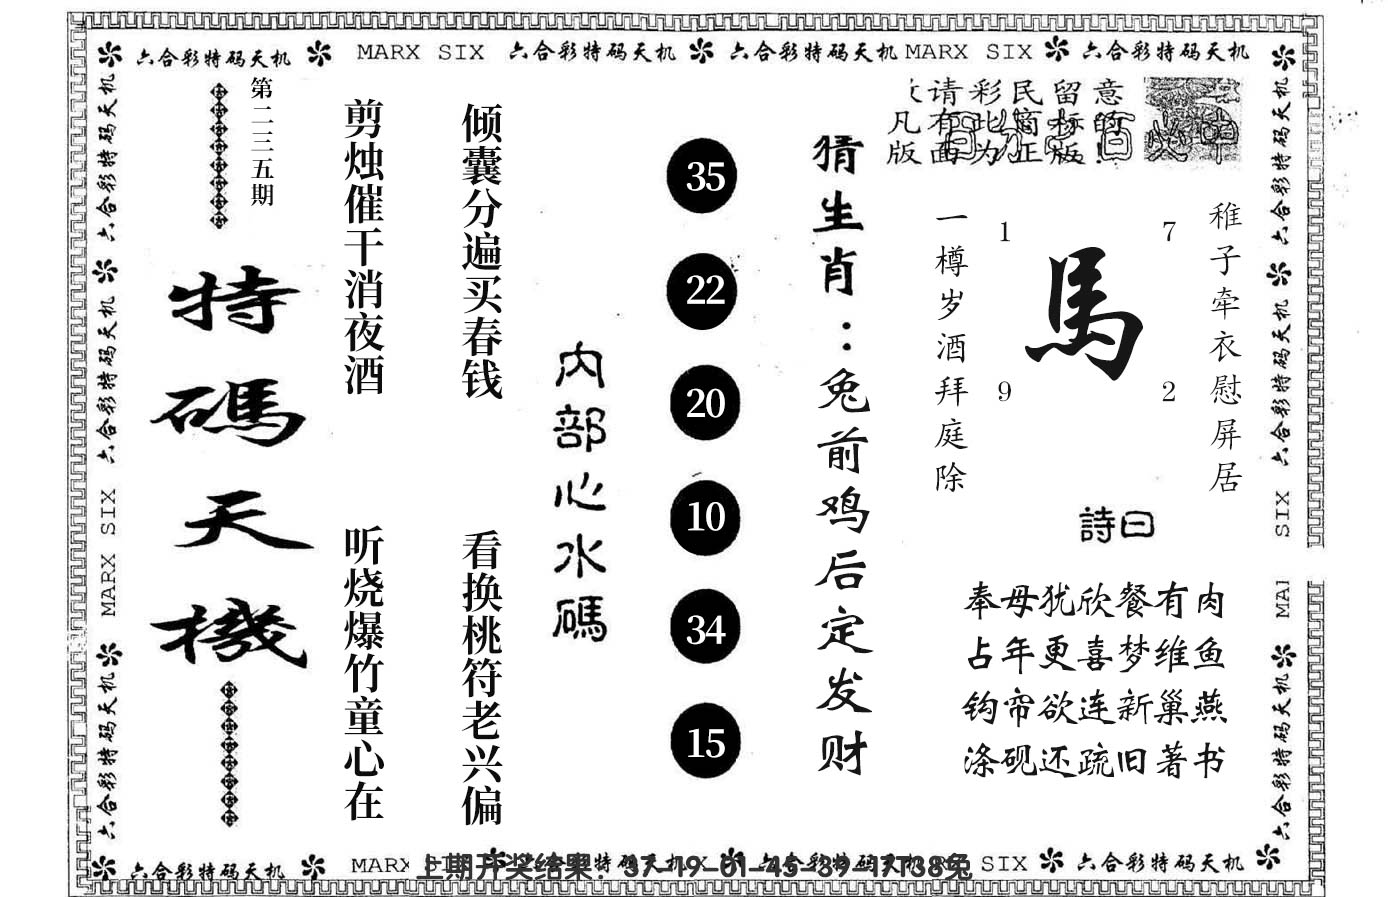 六合彩特码天机 MARX SIX 六合彩特码天机 六合彩特码天机 MARX SIX 六合彩特码天机
意的!
留标版
民商正
彩此为
请有面
凡版
稚子牵衣慰屏居
1 7
馬
9 2
一樽岁酒拜庭除
詩曰
奉母犹欣餐有肉
占年更喜梦维鱼
钩帘欲连新巢燕
涤砚还疏旧著书
猜生肖：兔前鸡后定发财
35
22
20
10
34
15
内部心水碼
倾囊分遍买春钱
看换桃符老兴偏
剪烛催干消夜酒
听烧爆竹童心在
第二三三五期
特碼天機
六合彩特码天机 六合彩特码天机 MARX SIX 六合彩特码天机
六合彩特码天机 六合彩特码天机 SIX MAI 六合彩特码天机
六合彩特码天机 MARX SIX 六合彩特码天机 六合彩特码天机 SIX 六合彩特码天机
上期开奖结果：37-19-01-45-39-17T38兔